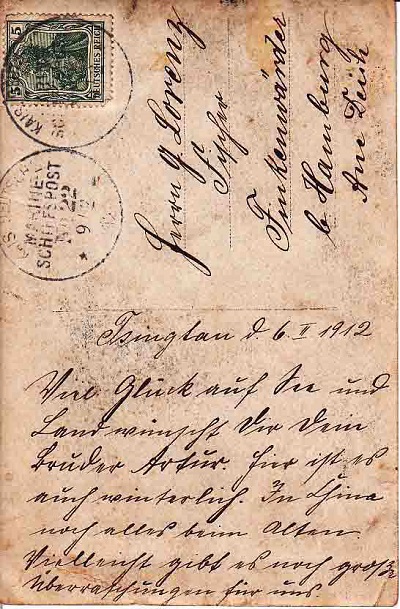 5 DEUTSCHES REICH 5
KAIS. DEUTSCHE
MARINE-
SCHIFFSPOST
No 22
9 2
12
Herrn G Lorenz
Fischer
Finkenwärder
b Hamburg
Am Deich
Tsingtau d. 6. II 1912
Viel Glück auf See und
Land wünscht Dir Dein
Bruder Artur. Hier ist es
auch winterlich. In China
noch alles beim Alten.
Vielleicht gibt es noch große
Überraschungen für uns.